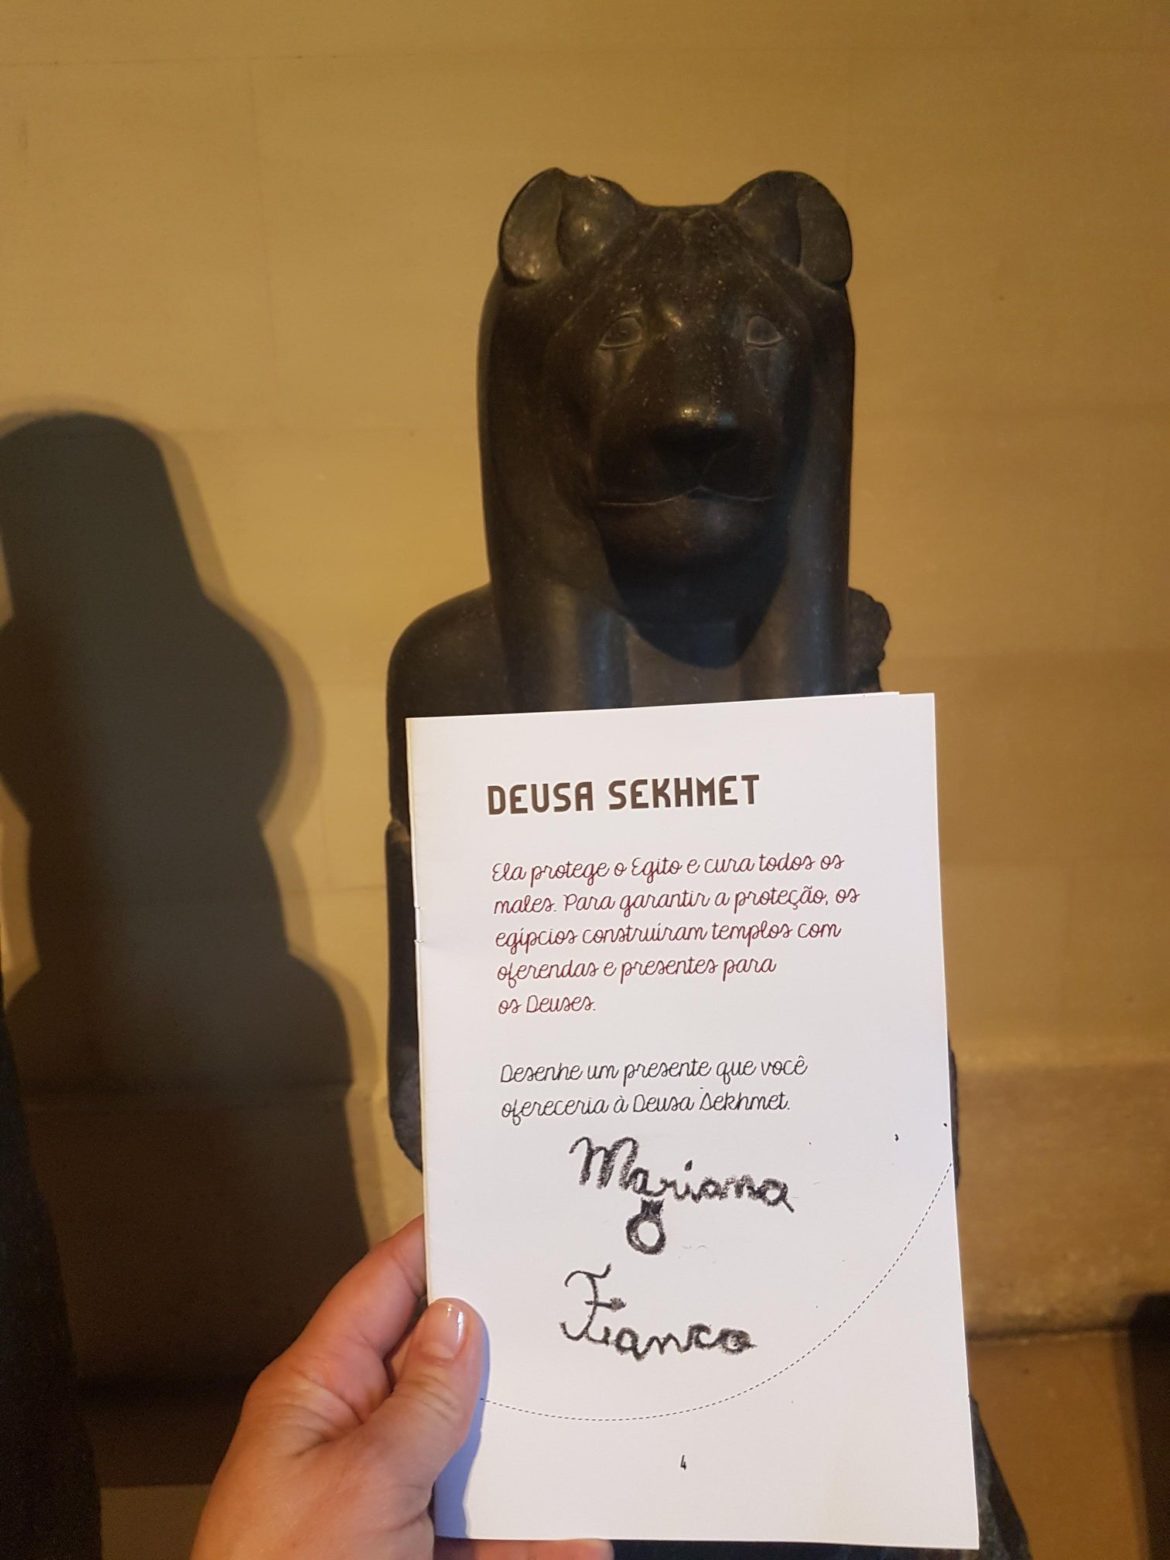 DEUSA SEKHMET
Ela protege o Egito e cura todos os
males. Para garantir a proteção, os
egípcios construíram templos com
oferendas e presentes para
os Deuses.
Desenhe um presente que você
ofereceria à Deusa Sekhmet.
Mariana
Franco
4